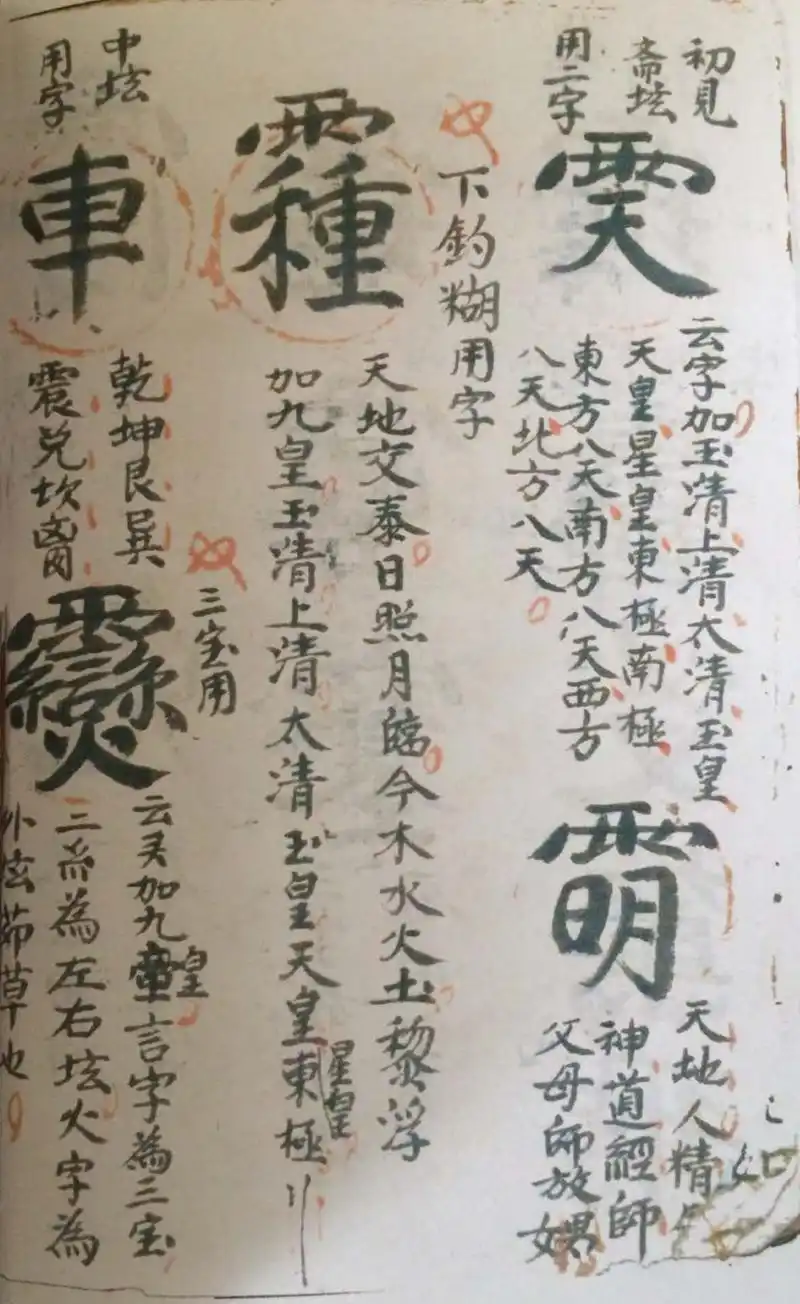 初見
斋坛
用二字
𩃀
云字加玉清上清太清玉皇
天皇星皇東極南極
東方八天南方八天西方
八天北方八天
天地人精
神道經師
父母師放
下釣糊用字
天地交泰日照月臨今木水火土黎浮
加九皇玉清上清太清玉皇天皇東極
星皇
中坛
用字
車
乾坤艮巽
震兌坎离
三宝用
云灵加九
皇
言字為三宝
三糸為左右坛火字為
外坛茆草也